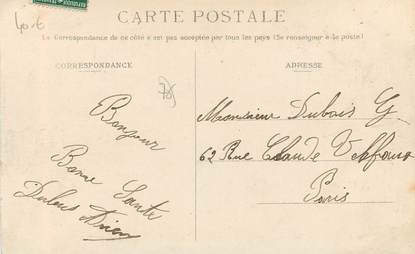 40-6
CARTE POSTALE
La Correspondance de ce côté n'est pas acceptée par tous les pays (Se renseigner à la poste)
CORRESPONDANCE
ADRESSE
78
Bonjour
Bonne Santé
Monsieur Dubois G
62 Rue Claude Vellefaux
Paris